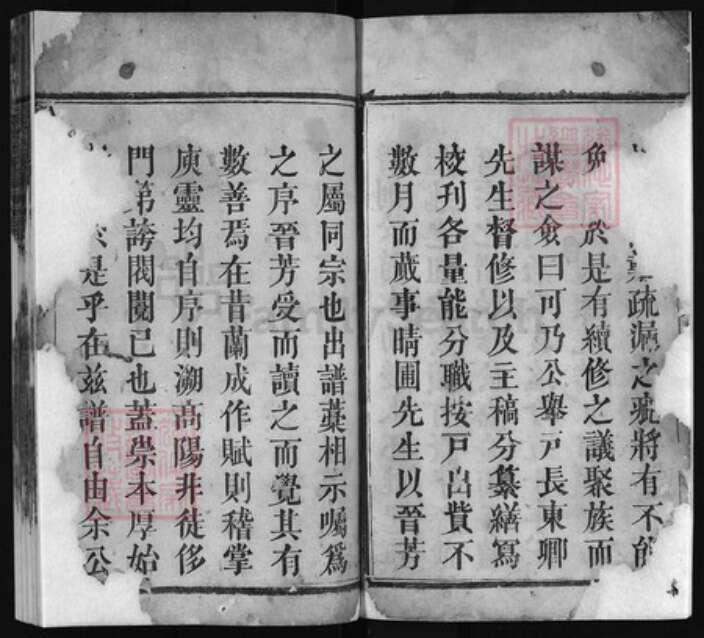 疏漏之虢將有不能
免 於是有續修之議聚族而
謀之僉曰可乃公舉戸長東卿
先生督修以及主稿分纂繕寫
校刋各量能分職按戸出貲不
數月而蕆事晴圃先生以晉芳
之屬同宗也出譜藁相示囑爲
之序晉芳受而讀之而覺其有
數善焉在昔蘭成作賦則稽掌
庾靈均自序則溯高陽非徒侈
門第誇閥閱已也蓋崇本厚始
於是乎在茲譜自由余公